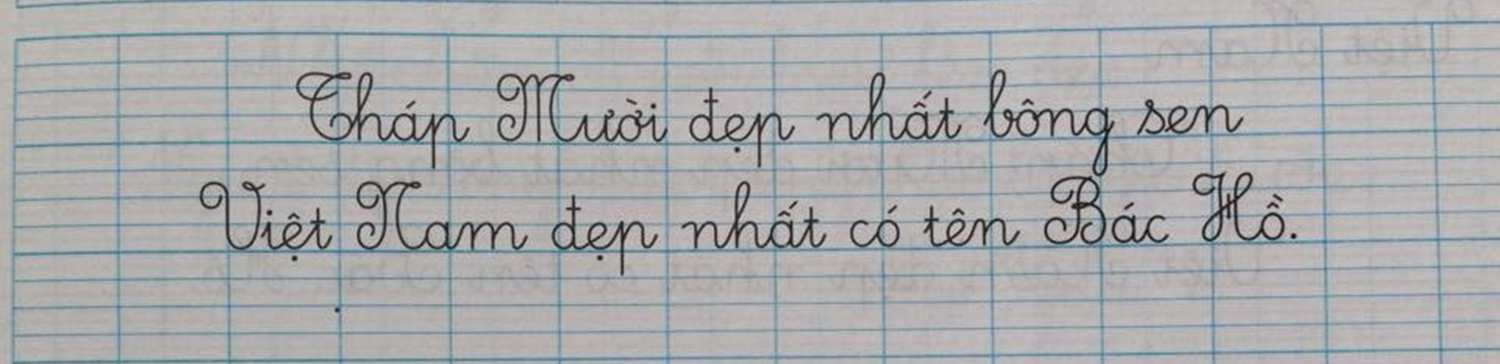 Tháp Mười đẹp nhất bông sen
Việt Nam đẹp nhất có tên Bác Hồ.